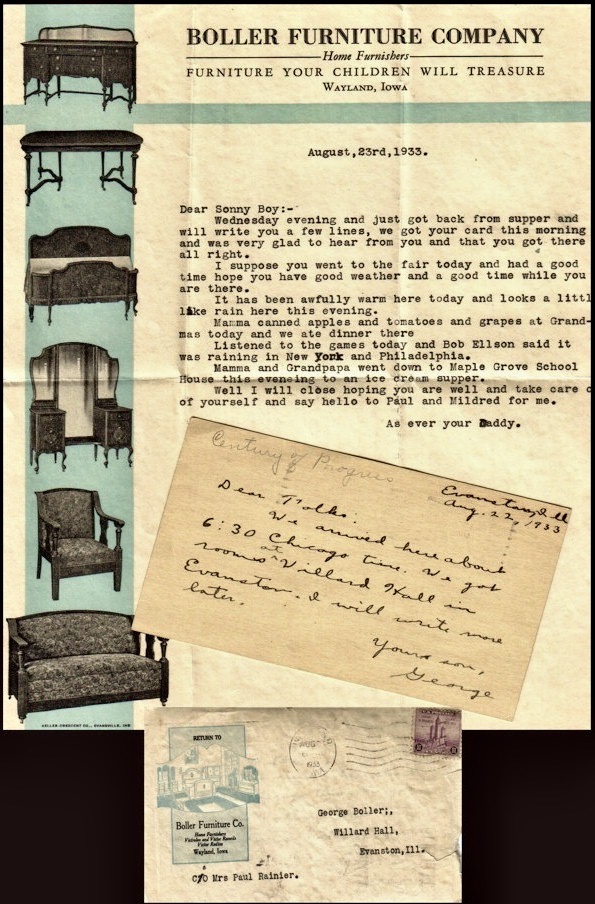 BOLLER FURNITURE COMPANY
Home Furnishers
FURNITURE YOUR CHILDREN WILL TREASURE
WAYLAND, IOWA
August,23rd,1933.
Dear Sonny Boy:-
Wednesday evening and just got back from supper and
will write you a few lines, we got your card this morning
and was very glad to hear from you and that you got there
all right.
I suppose you went to the fair today and had a good
time hope you have good weather and a good time while you
are there.
It has been awfully warm here today and looks a littl
like rain here this evening.
Mamma canned apples and tomatoes and grapes at Grand-
mas today and we ate dinner there
Listened to the games today and Bob Ellson said it
was raining in New York and Philadelphia.
Mamma and Grandpapa went down to Maple Grove School
House this eveneing to an ice cream supper.
Well I will close hoping you are well and take care o
of yourself and say hello to Paul and Mildred for me.
As ever your Daddy.
KELLER-CRESCENT CO., EVANSVILLE, IND
Century of Progress
Evanston, Ill
Aug. 22, 1933
Dear Folks:
We arrived here about
6:30 Chicago time. We got
rooms at Willard Hall in
Evanston. I will write more
later.
Yours son,
George
RETURN TO
Boller Furniture Co.
Home Furnishers
Victrolas and Victor Records
Victor Radios
Wayland, Iowa
AUG
1933
George Boller;,
Willard Hall,
Evanston,Ill.
C/O Mrs Paul Rainier.